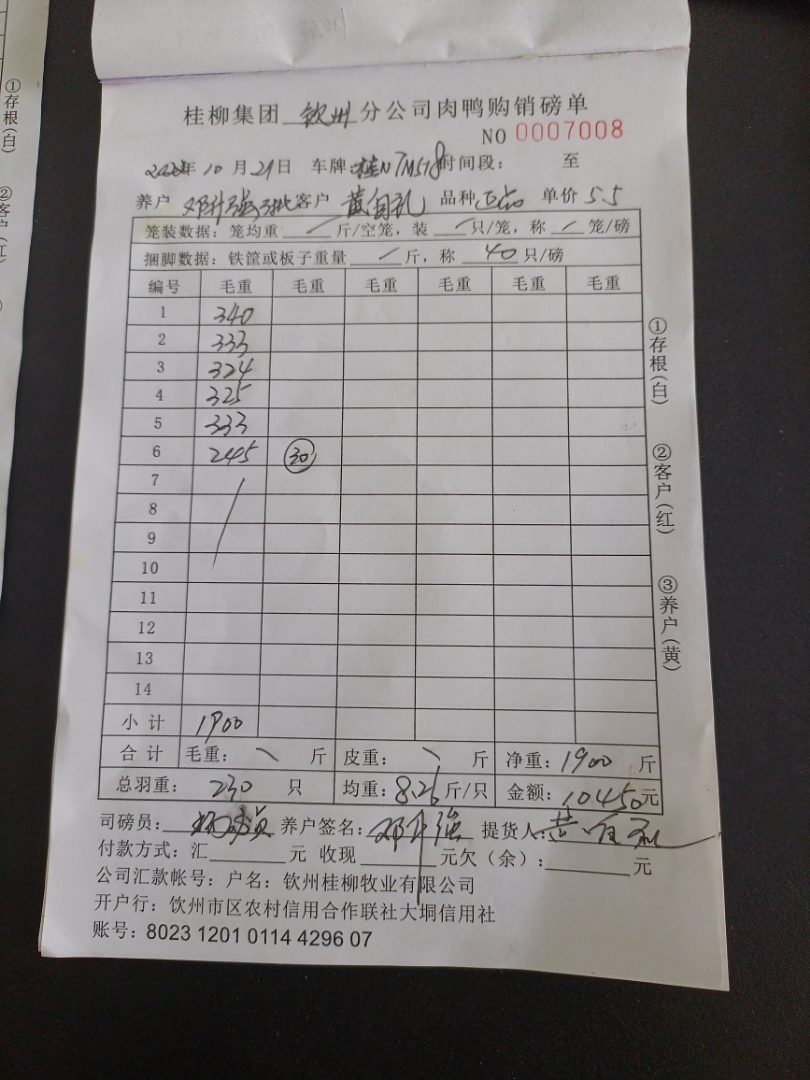 桂柳集团 钦州 分公司肉鸭购销磅单
NO 0007008
年10月29日 车牌:桂N 时间段: 至
养户 邓升强 客户 黄自孔 品种 正品 单价 5.5
笼装数据:笼均重 / 斤/空笼,装 / 只/笼,称 / 笼/磅
捆脚数据:铁筐或板子重量 / 斤,称 40 只/磅
编号 毛重 毛重 毛重 毛重 毛重 毛重
1 340
2 333
3 324
4 325
5 333
6 245 30
7
8
9
10
11
12
13
14
小计 1900
合计 毛重: 斤 皮重: 斤 净重:1900 斤
总羽重: 230 只 均重:8.26 斤/只 金额:10450元
司磅员: 养户签名:邓升强 提货人:黄自孔
付款方式:汇 元 收现 元欠(余): 元
公司汇款帐号:户名:钦州桂柳牧业有限公司
开户行:钦州市区农村信用合作联社大垌信用社
账号:8023 1201 0114 4296 07
①存根(白)
②客户(红)
③养户(黄)
①存根(白)
②客户(红)